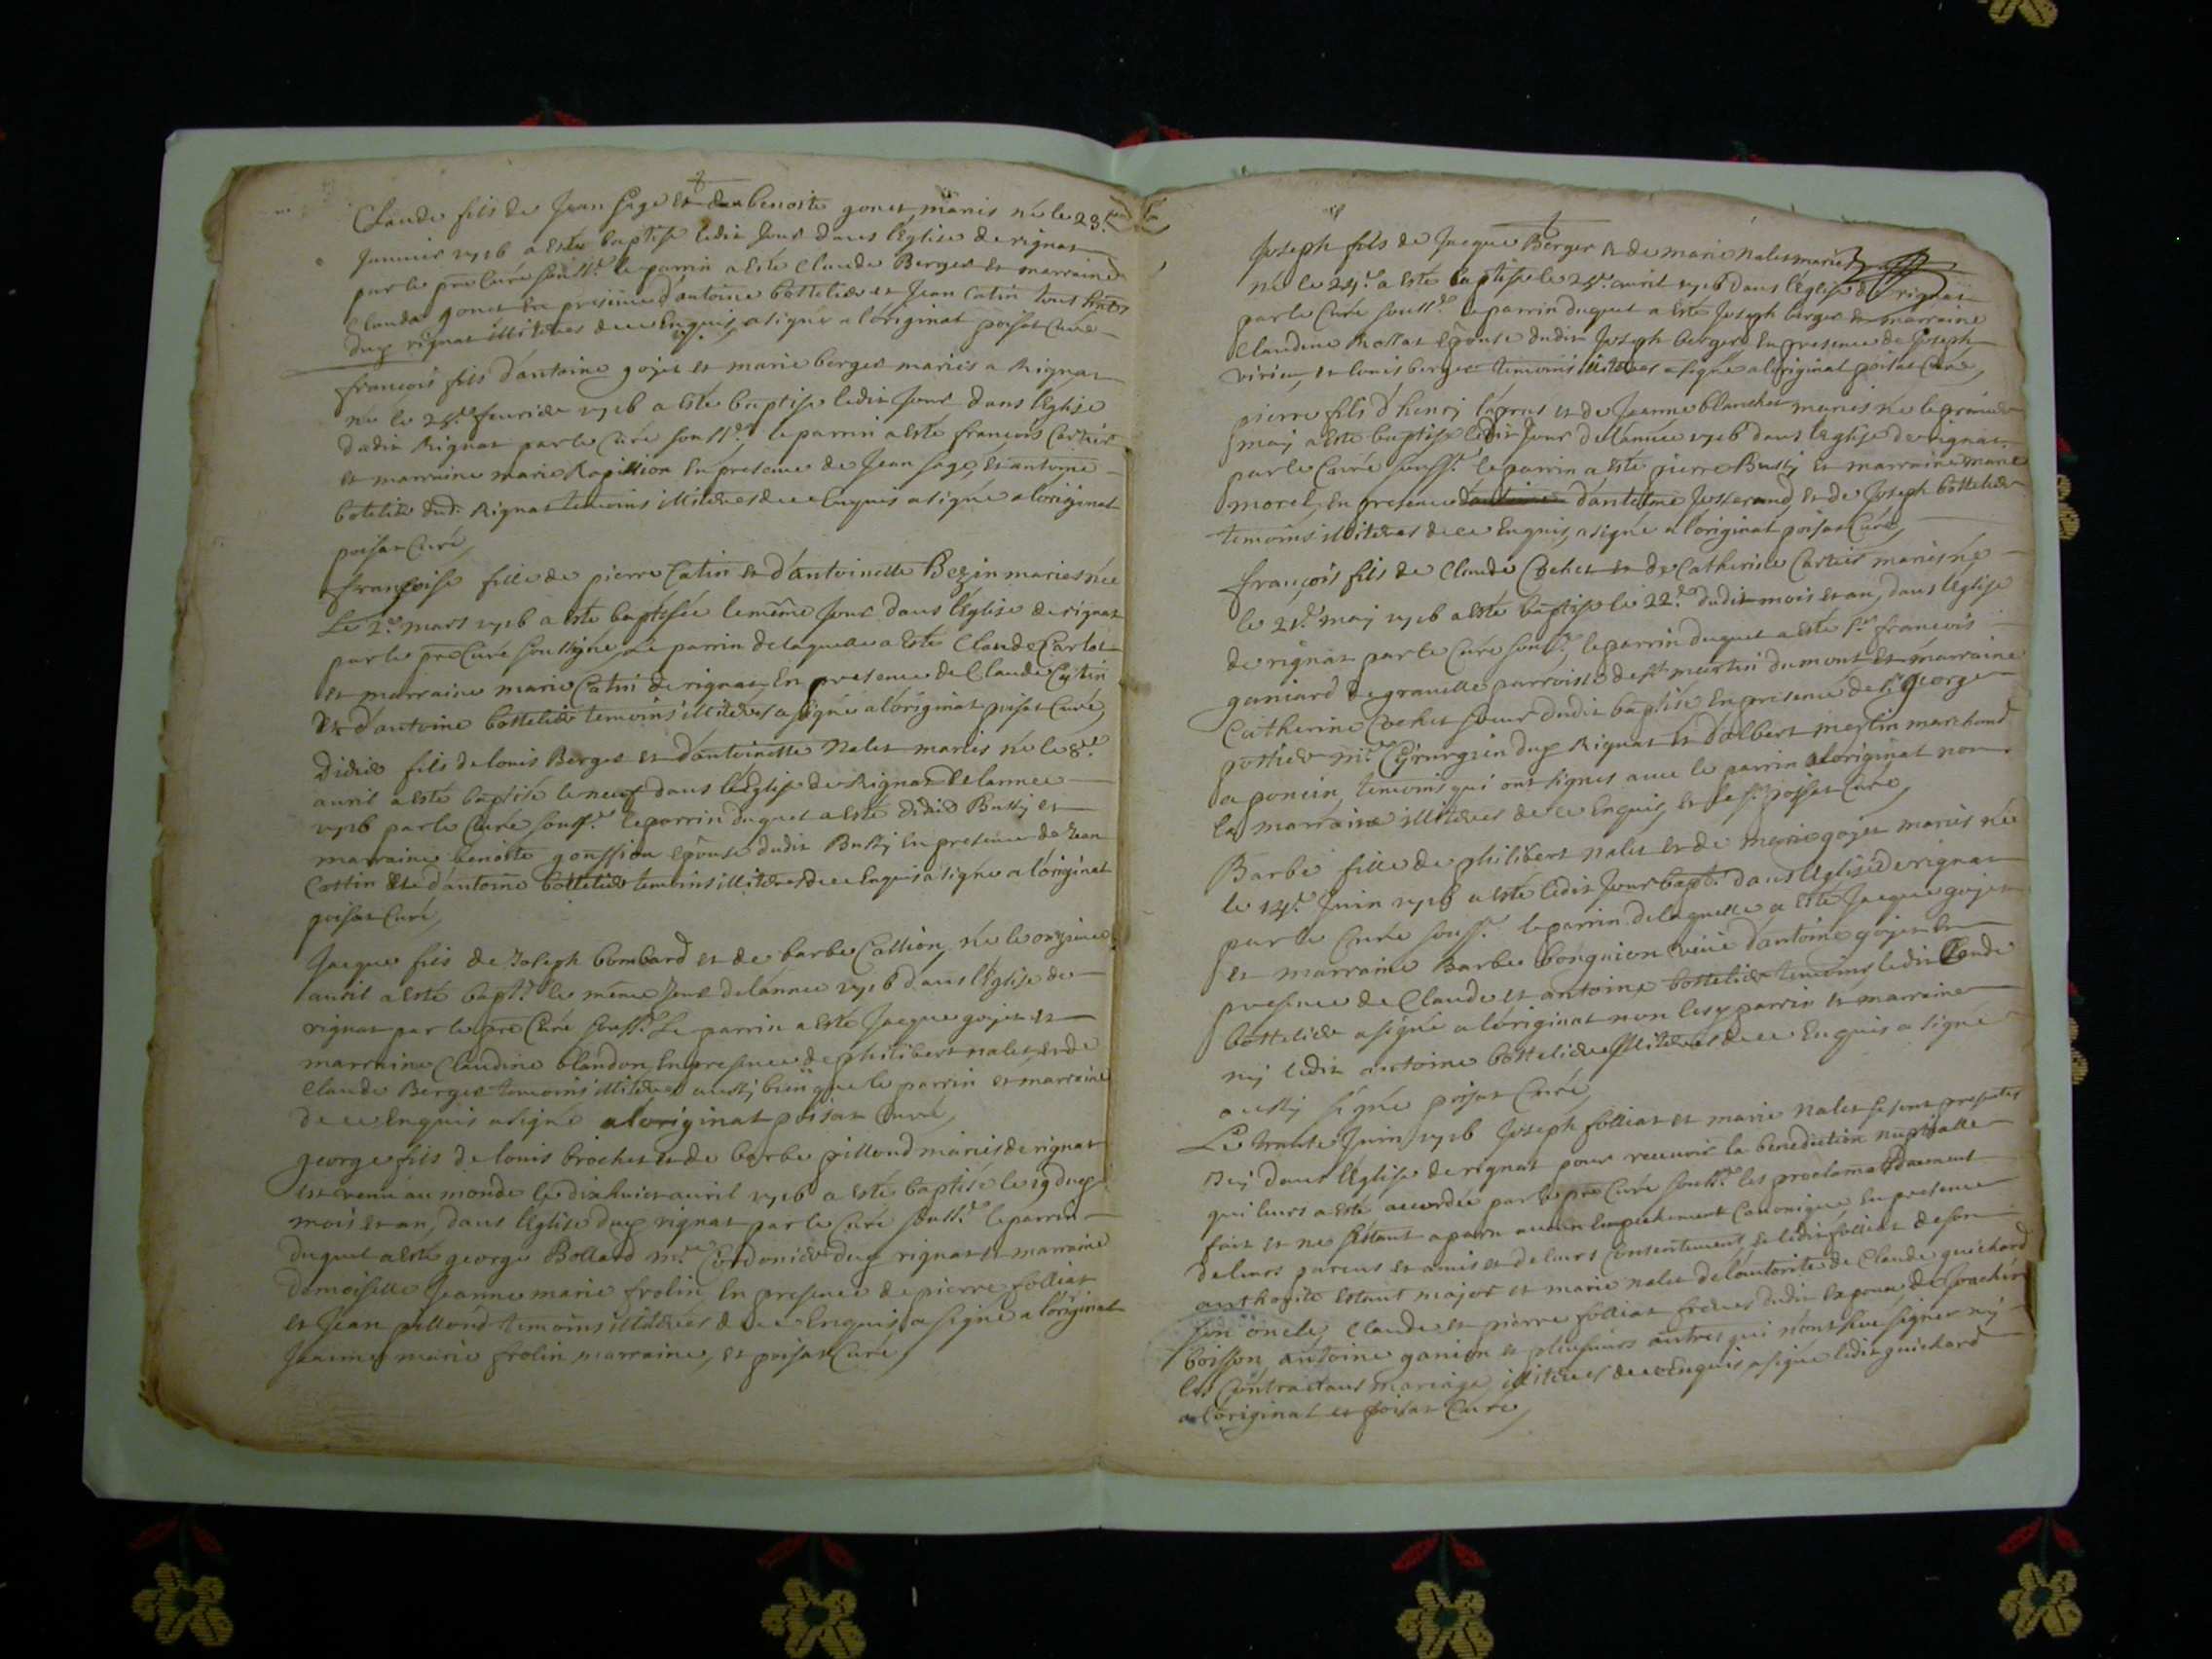 Claude fils de Jean sage et de benoiste gonet mariés né le 23e
Januier 1716 a esté baptisé ledit Jour dans l'Eglise de rignat
par le pre Curé souss.é le parrin a esté Claude Berger et marraine
Clauda gonet En presence d'antoine bottelier et Jean Catin tous
dud rignat illiteres de ce Enquis, a signé a l'original poisat Curé
françois fils d'antoine gojet et marie berger mariés a Rignat
né le 28e feurier 1716 a esté baptisé ledit Jour dans l'Eglise
dudit Rignat par le Curé souss.é le parrin a esté francois Cartier
et marraine marie Rapillion En presence de Jean sage, et antoine
botelier dud. Rignat temoins illiteres de ce Enquis a signé a l'original
poisat Curé
françoise fille de pierre Catin et d'antoinette Bezin mariés née
Le 2e mars 1716 a esté baptisée le même Jour dans l'Eglise de rignat
par le pre Curé soussigné, le parrin de laquelle a esté Claude Carlot
et marraine marie Catin de rignat, En presence de Claude Catin
et d'antoine bottelier temoins illiteres a signé a l'original poisat Curé
Didier fils de louis Berger et d'antoinette Nalet mariés né le 8e
auril a esté baptisé le neuf dans l'Eglise de Rignat de l'annee
1716 par le Curé souss.é le parrin duquel a esté didier Bussy et
marraine benoste goussion Epouse dudit Bussy En presence de Jean
Cattin et d'antoine bottelier temoins illiteres de ce Enquis a signé a l'original
poisat Curé
Jacque fils de Joseph bombard et de barbe Cassion, né le onzieme
auril a esté bapt.é le même Jour de l'annee 1716 dans l'Eglise de
rignat par le pre Curé souss.é Le parrin a esté Jacque gojet et
marraine Claudine blandon, En presence de philibert nalet, et de
Claude Berger temoins illiteres aussy bien que le parrin et marraine
de ce Enquis a signé a l'original poisat Curé
george fils de louis brochet et de barbe pillond mariés de rignat
est venu au monde le dixhuict auril 1716 a esté baptisé le 19 dud
mois et an, dans l'Eglise dud rignat par le Curé souss.é le parrin
duquel a esté george Bollard m.e Cordonier dud rignat et marraine
demoiselle Jeanne marie frolin En presence de pierre folliat
et Jean pillond temoins illiteres de ce Enquis, a signé a l'original
Jeanne marie frolin marraine, et poisat Curé
Joseph fils de Jacque Berger & de marie nalet mariés
né le 24e a esté baptisé le 25e auril 1716 dans l'Eglise de rignat
par le Curé souss.é le parrin duquel a esté Joseph berger et marraine
Claudine Rossat Epouse dudit Joseph berger En presence de Joseph
virieu, et louis berger temoins illiteres a signé a l'original poisat Curé
pierre fils d'henry legrus et de Jeanne blanchet mariés né le premier
may a esté baptisé ledit Jour de l'année 1716 dans l'Eglise de rignat
par le Curé souss.é le parrin a esté pierre Bussy et marraine marie
morel, En presence d'antoine d'antelme Josserand, et de Joseph bottelier
temoins illiteres de ce Enquis, a signé a l'original poisat Curé
françois fils de Claude Cochet et de Catherine Cartier mariés né
le 21e may 1716 a esté baptisé le 22e dudit mois et an, dans l'Eglise
de rignat par le Curé souss.é, le parrin duquel a esté sr francois
ganiard de grauelle parroisse de st martin du mont et marraine
Catherine Cochet soeur dudit baptisé En presence de sr george
pottier m.e Chirurgien dud Rignat et d'albert merlin marchand
a poncin temoins qui ont signés auec le parrin a l'original non
la marraine illiteres de ce Enquis, et le sr poisat Curé
Barbe fille de philibert nalet et de marie gojet mariés née
le 14e Juin 1716 a esté ledit Jour bapt.é dans l'Eglise de rignat
par le Curée souss.é le parrin de laquelle a esté Jacque gojet
et marraine Barbe bonguion veuve d'antoine gojet En
presence de Claude et antoine bottelier temoins ledit Claude
bottelier a signé a l'original non lesd parrin et marraine
ny ledit antoine bottelier illiteres de ce Enquis a signé
aussy signé poisat Curé
Le trente Juin 1716 Joseph folliat et marie nalet se sont presentés
Icy dans l'Eglise de rignat pour receuoir la benediction nuptialle
qui leurs a esté accordée par le pre Curé souss.é les proclamats deuement
fait et ne s'estant aparu aucun Empechement Canonique En presence
de leurs parens et amis et de leurs Consentement, et ledit folliat de son
authorité Estant major et marie nalet de l'autorité de Claude guichard
son oncle, Claude et pierre folliat freres dudit Epoux
boisson, antoine ganion et plusieurs autres qui n'ont sceu signer ny
les Contractans mariage illiteres de ce Enquis, a signé ledit guichard
a l'original et poisat Curé